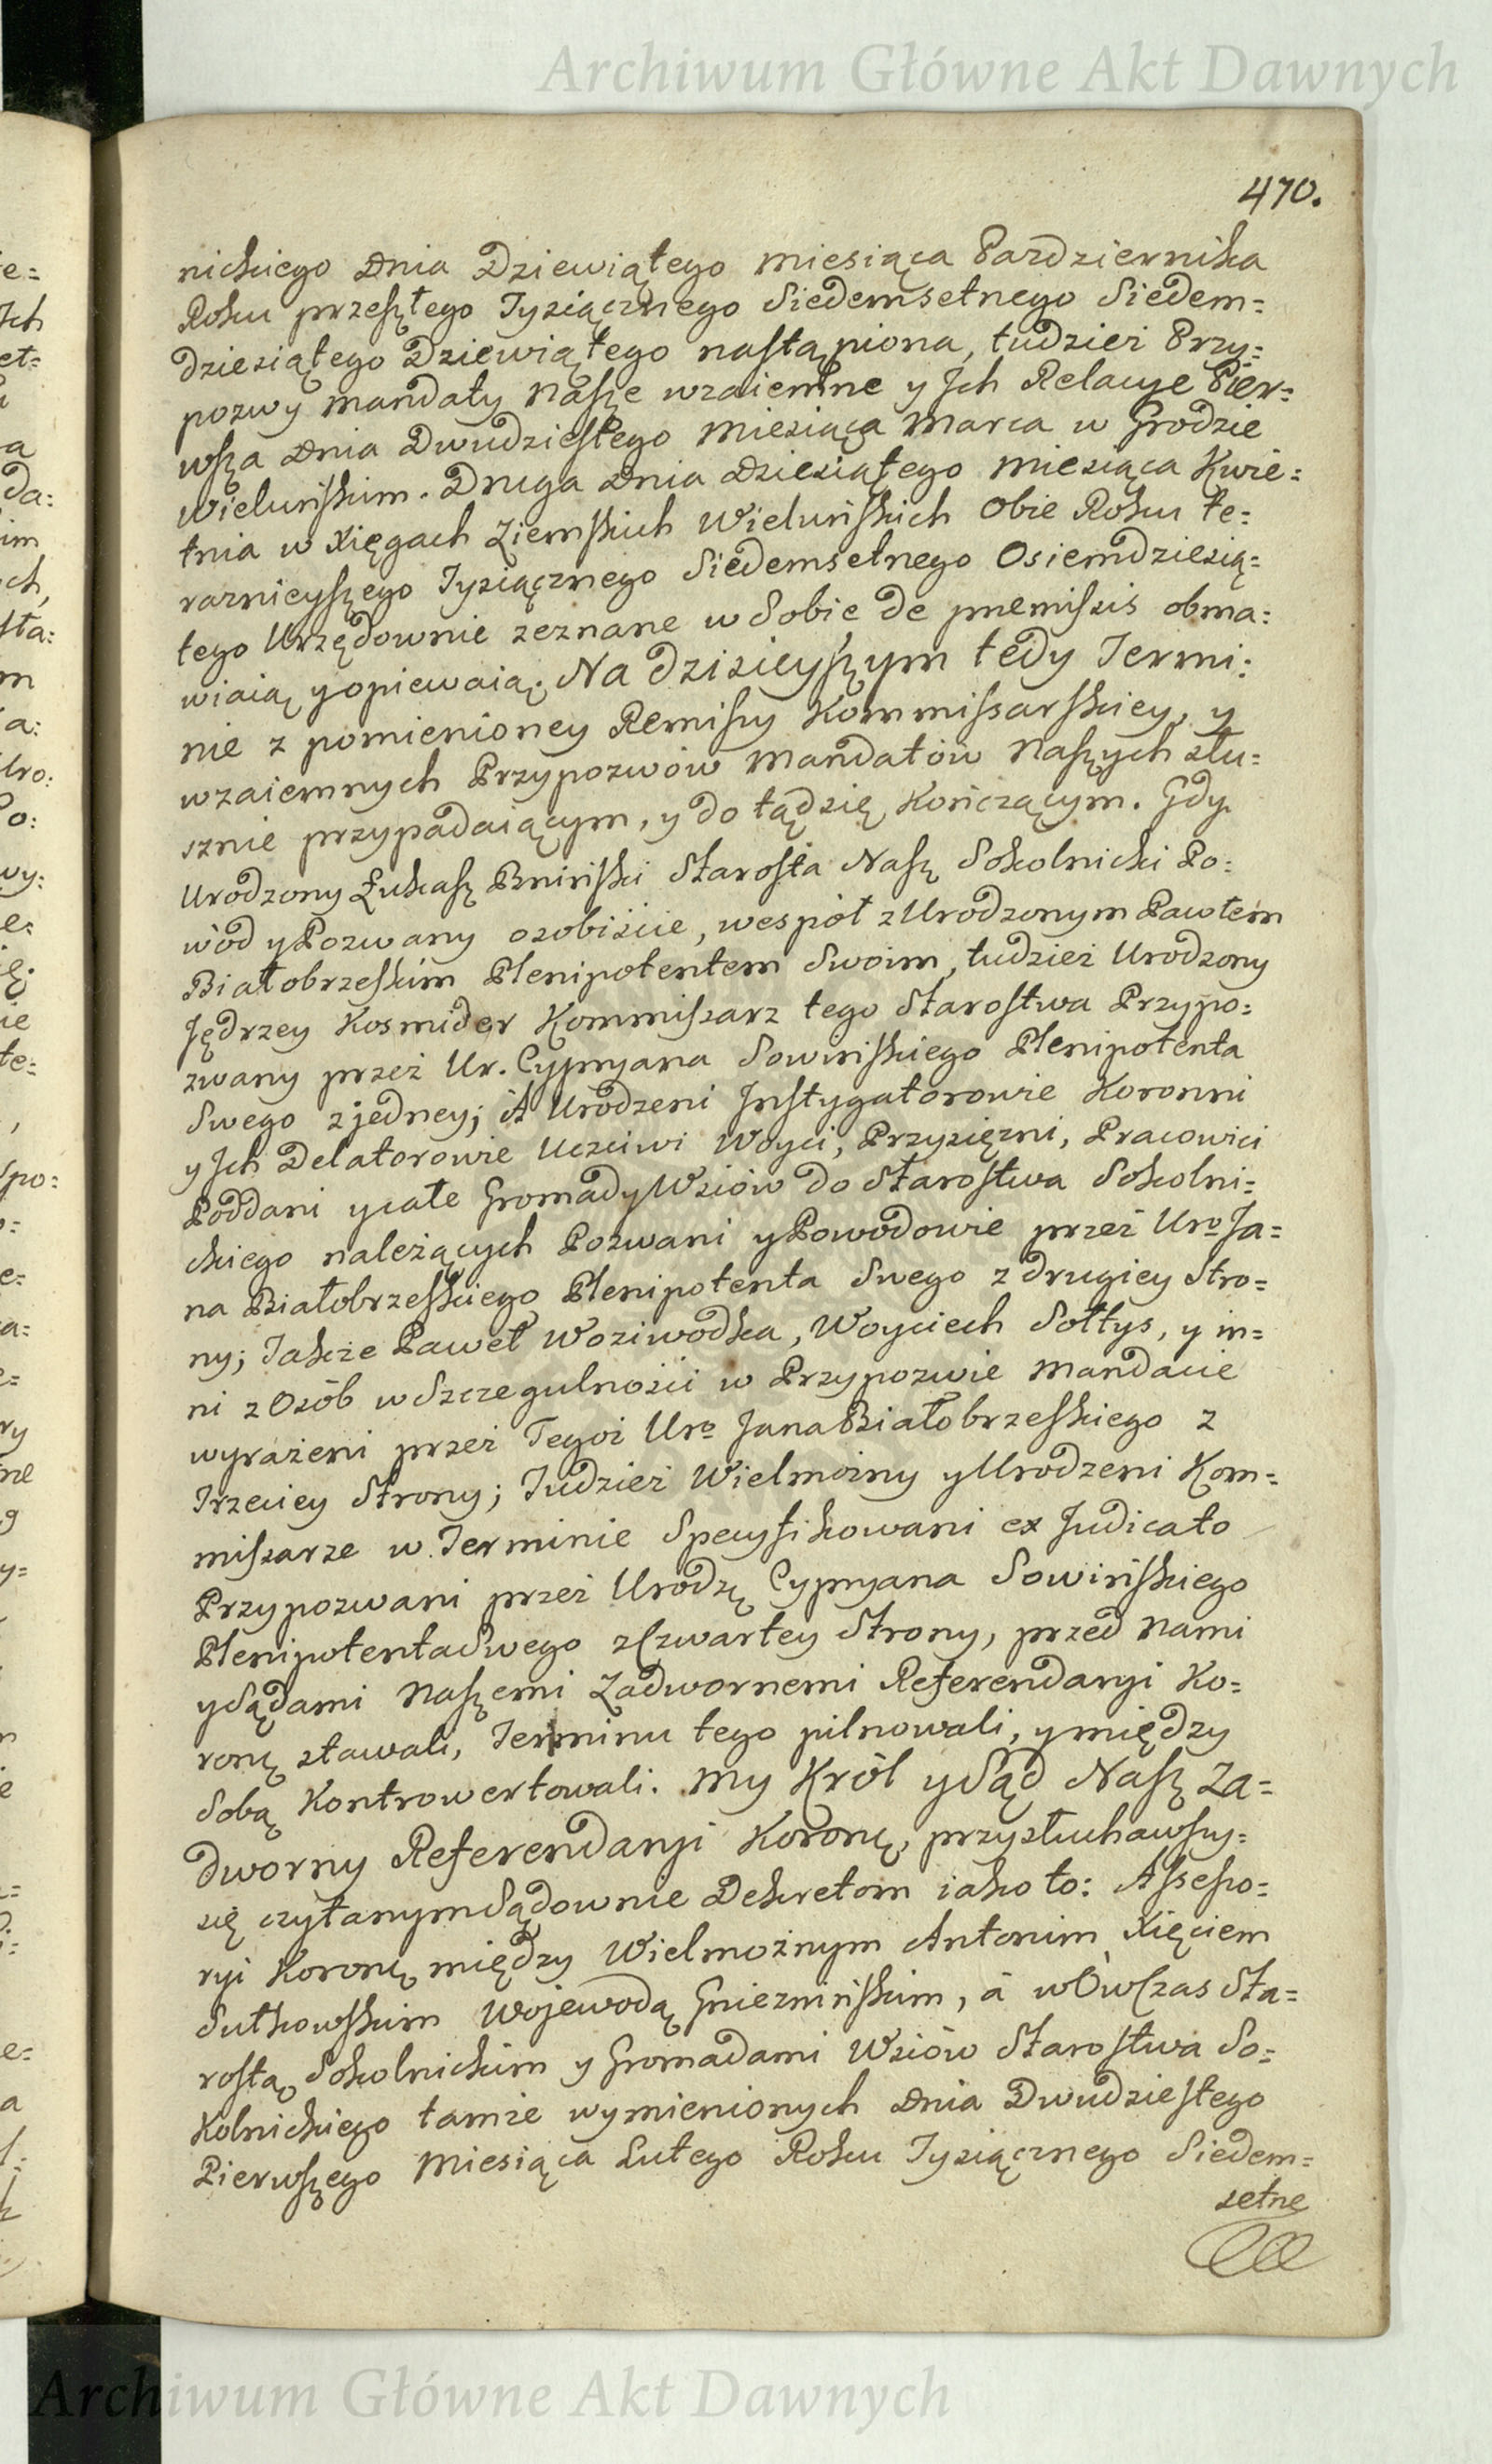 Archiwum Główne Akt Dawnych
470.
nickiego Dnia Dziewiątego Miesiąca Pazdziernika
Roku przeszłego Tysiącznego Siedemsetnego Siedem=
dziesiątego Dziewiątego nastąpiona, tudzież Przy=
pozwy Mandaty Nasze wzaiemne y Jch Relacye Pier=
wsza Dnia Dwudziestego Miesiąca Marca w Grodzie
Wieluńskim. Druga Dnia Dziesiątego Miesiąca Kwie=
tnia w Xięgach Ziemskich Wieluńskich Obie Roku te=
raznieyszego Tysiącznego Siedemsetnego Osiemdziesią=
tego Urzędownie zeznane w Sobie de premissis obma=
wiaią y opiewaią. Na dzisieyszym tedy Termi=
nie z pomienioney Remissy Kommissarskiey, y
wzaiemnych Przypozwów Mandatów Naszych słu=
sznie przypadaiącym, y do tąd się Kończącym. Gdy
Urodzony Łukasz Bniński Starosta Nasz Sokolnicki Po=
wód y Pozwany osobiście, wespół z Urodzonym Pawłem
Białobrzeskim Plenipotentem Swoim, tudzież Urodzony
Jędrzey Kosmider Kommissarz tego Starostwa Przypo=
zwany przez Ur. Cypryana Sowińskiego Plenipotenta
Swego z jedney; A Urodzeni Jnstygatorowie Koronni
y Jch Delatorowie Uczciwi Woyci, Przysięzni, Pracowici
Poddani y całe Gromady Wsiów do Starostwa Sokolni=
ckiego należących Pozwani y Powodowie przez Uro Ja=
na Białobrzeskiego Plenipotenta Swego z drugiey Stro=
ny; Także Paweł Woziwodka, Woyciech Sołtys, y in=
ni z Osób w Szczegulności w Przypozwie Mandacie
wyrażeni przez Tegoż Uro Jana Białobrzeskiego z
Trzeciey Strony; Tudzież Wielmożny y Urodzeni Kom=
missarze w Terminie Specyfikowani ex Judicato
Przypozwani przez Urodzę Cypryana Sowińskiego
Plenipotenta Swego z Czwartey Strony, przed Nami
y Sądami Naszemi Zadwornemi Referendaryi Ko=
ronę stawali, Terminu tego pilnowali, y między
Sobą Kontrowertowali. My Król y Sąd Nasz Za=
dworny Referendaryi Koronę, przysłuchawszy=
się czytanym Sądownie Dekretom iako to: Assesso=
ryi Koronę między Wielmożnym Antonim Xięciem
Sułkowskim Wojewodą Gnieznińskim, á wówczas Sta=
rostą Sokolnickim y Gromadami Wsiów Starostwa So=
kolnickiego tamże wymienionych Dnia Dwudziestego
Pierwszego Miesiąca Lutego Roku Tysiącznego Siedem=
setne
Archiwum Główne Akt Dawnych